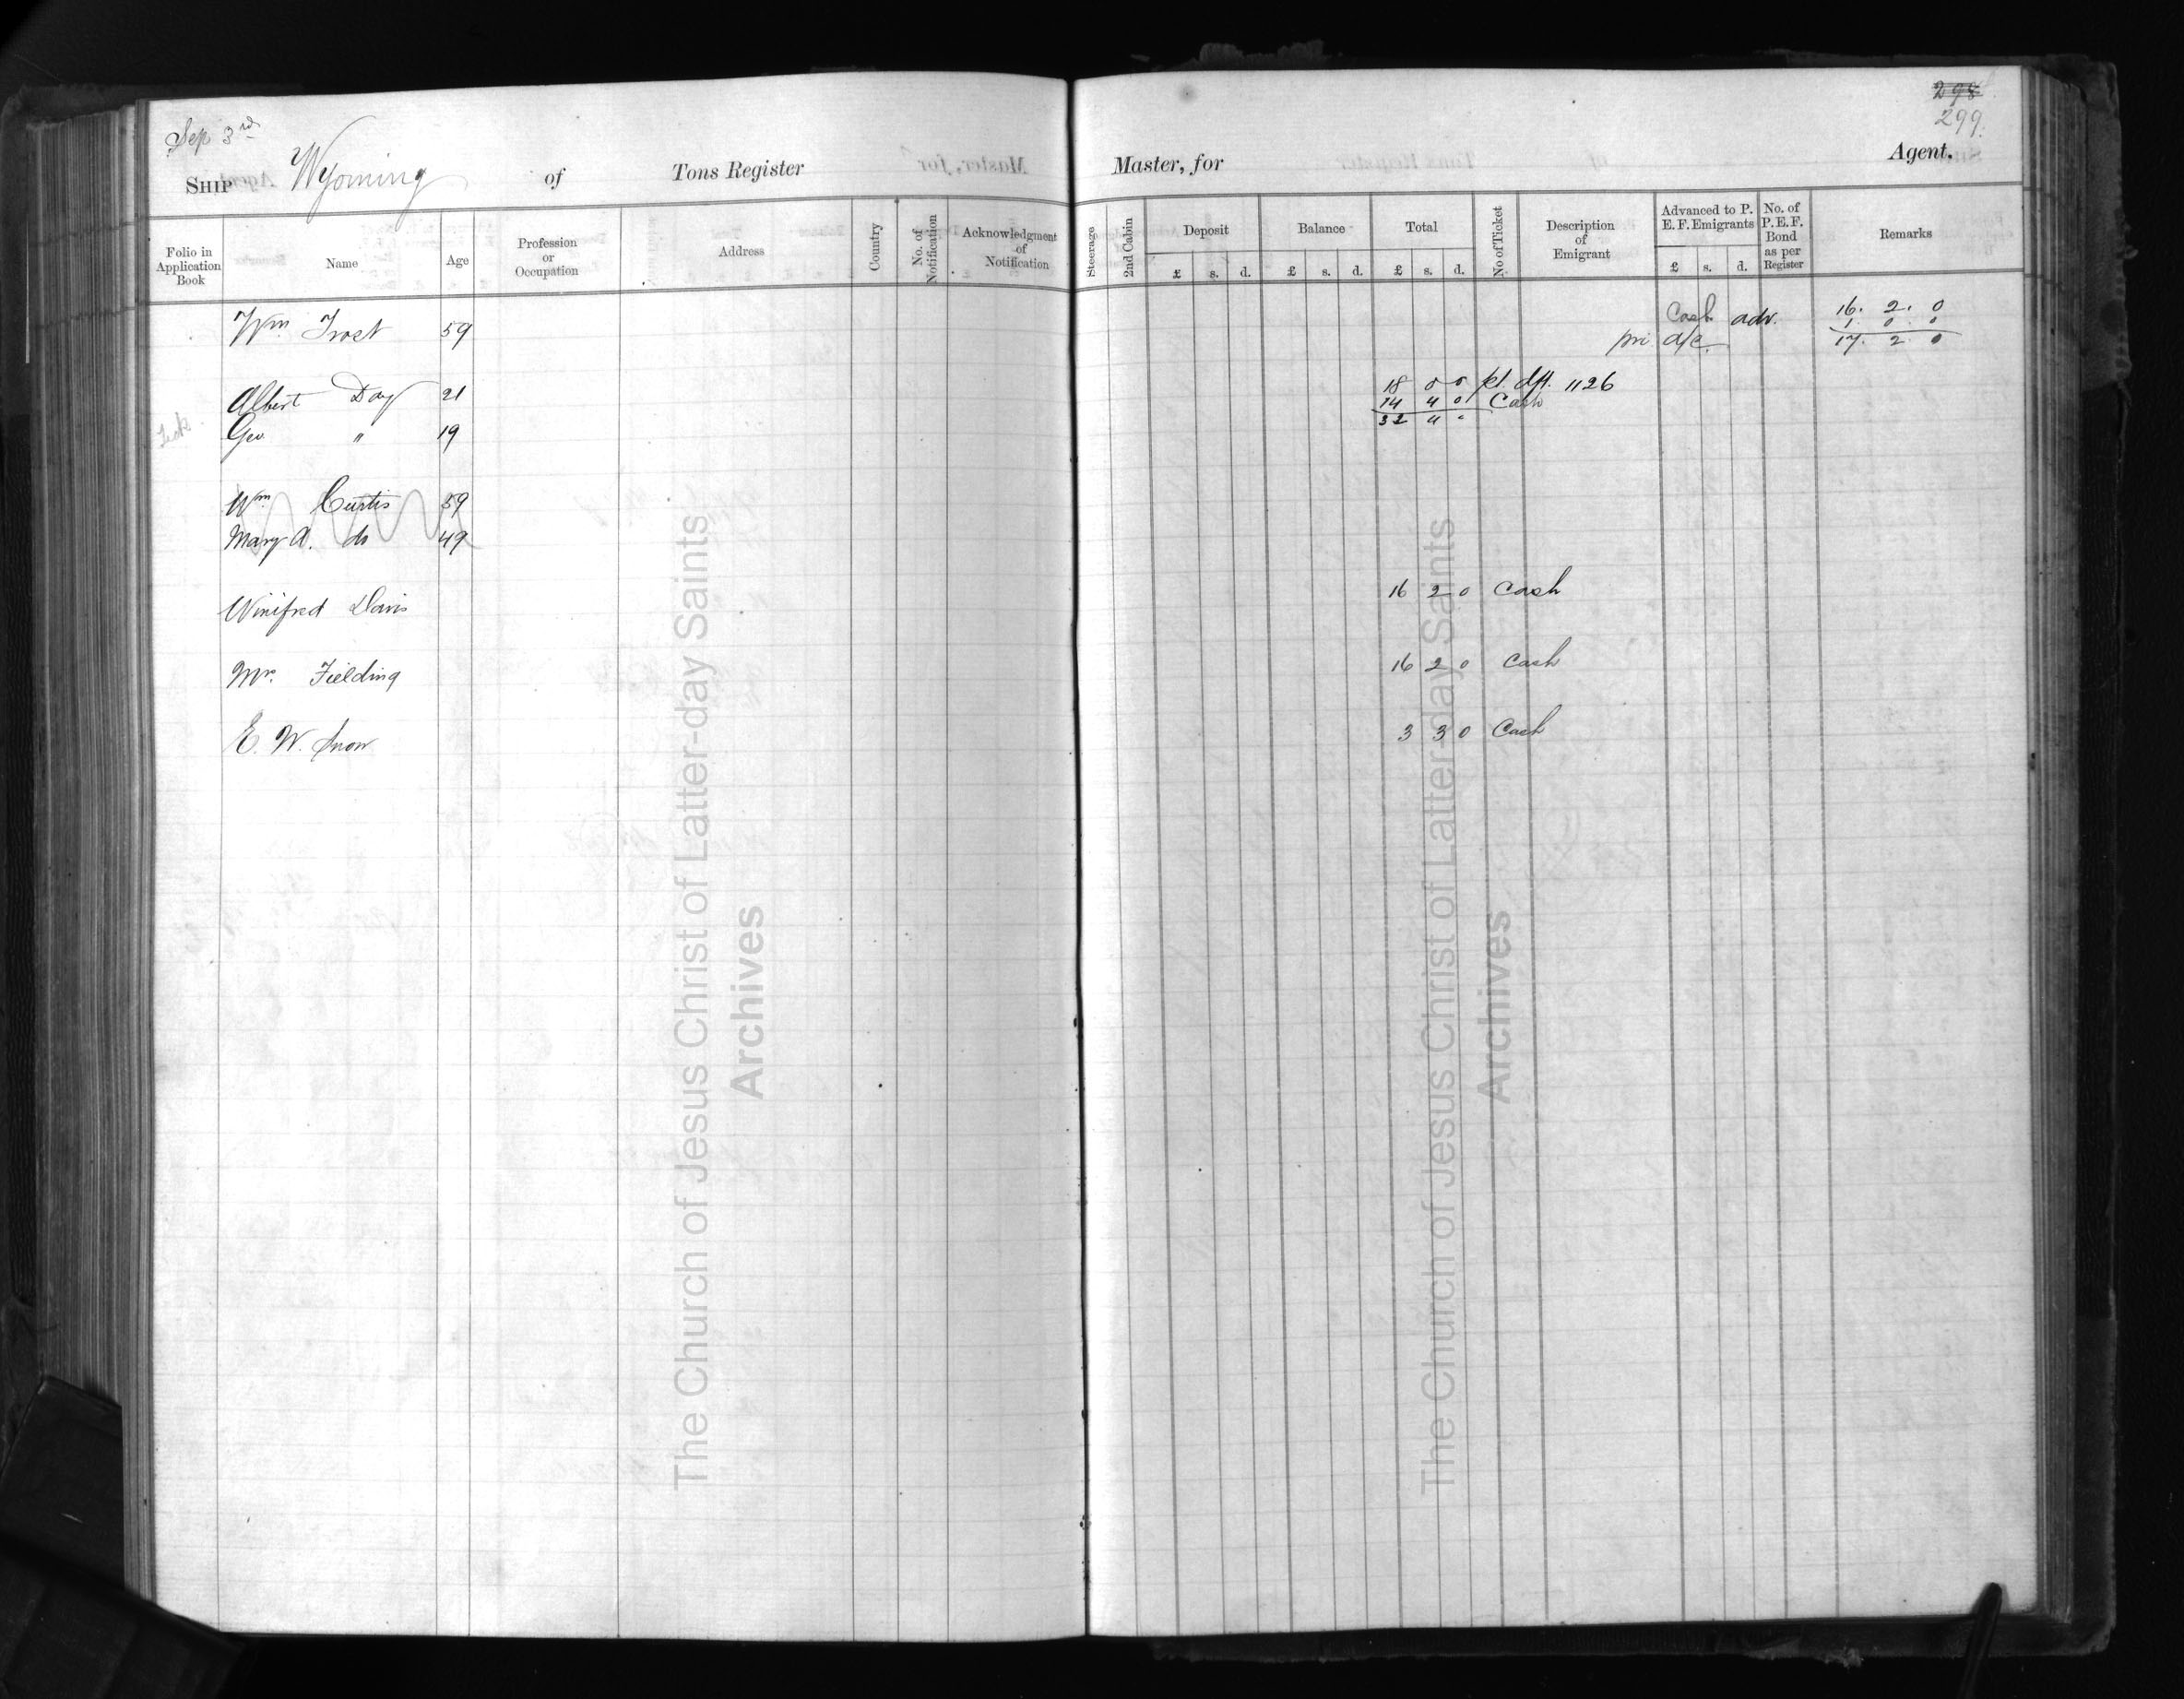 298
299.
Sep 3rd
SHIP Wyoming of Tons Register Master, for Agent.
Folio in Application Book Name Age Profession or Occupation Address Country No. of Notification Acknowledgment of Notification Steerage 2nd Cabin Deposit Balance Total No of Ticket Description of Emigrant Advanced to P. E. F. Emigrants No. of P.E.F. Bond as per Register Remarks
£ s. d. £ s. d. £ s. d. £ s. d.
Wm Frost 59 Cash adv. 16. 2. 0
1. 0. 0
pri a/c. 17. 2. 0
Albert Day 21 18 0 0 dft. 1126
14 4 0 Cash
Geo " 19 32 4 "
Wm Curtis 59
Mary A. do 49
Winifred Davis 16 2 0 Cash
Mr. Fielding 16 2 0 Cash
E. W. Snow 3 3 0 Cash
The Church of Jesus Christ of Latter-day Saints
Archives
The Church of Jesus Christ of Latter-day Saints
Archives